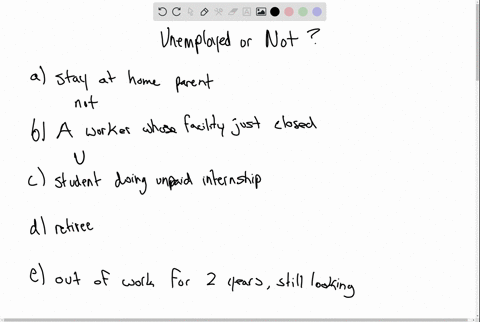 Unemployed or Not?
a) stay at home parent
not
b) A worker whose facility just closed
U
c) student doing unpaid internship
d) retiree
e) out of work for 2 years, still looking